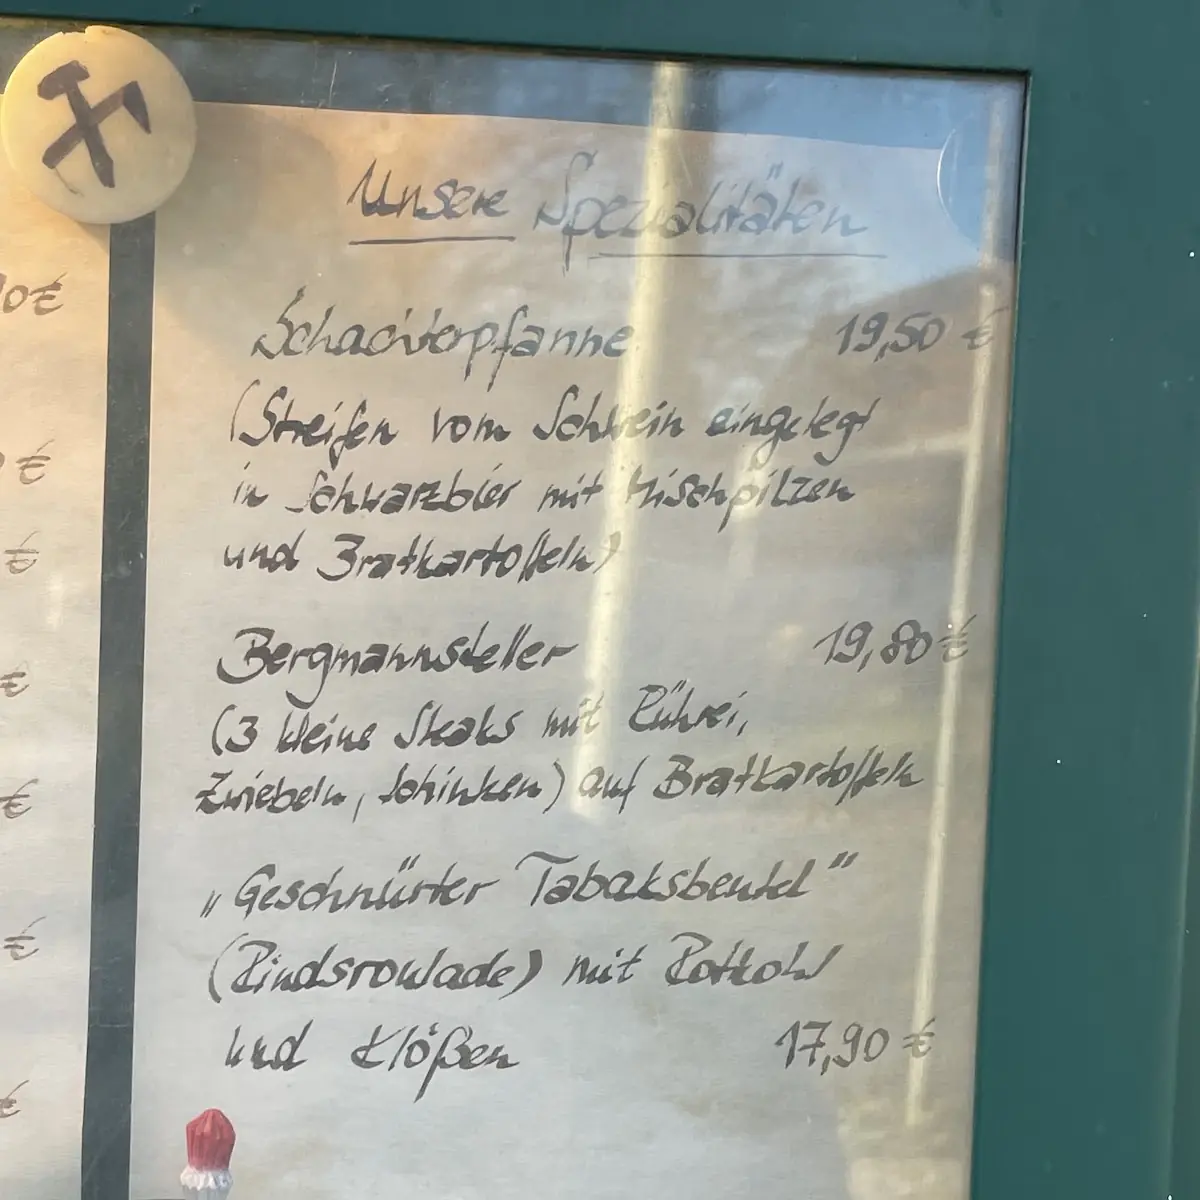 Unsere Spezialitäten
Schachterpfanne 19,50 €
(Streifen vom Schwein eingelegt
in Schwarzbier mit Mischpilzen
und Bratkartoffeln)
Bergmannsteller 19,80 €
(3 kleine Steaks mit Rührei,
Zwiebeln, Schinken) auf Bratkartoffeln
„Geschnürter Tabaksbeutel"
(Rindsroulade) mit Rotkohl
und Klößen 17,90 €
0€
€
€
€
€
€
€